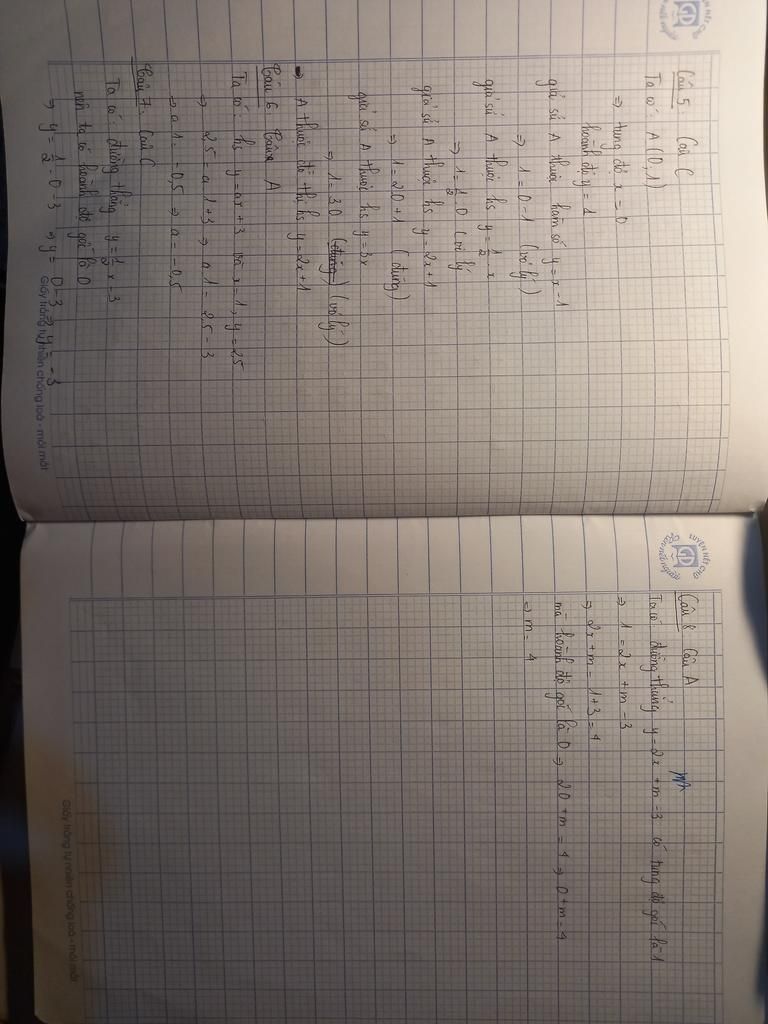 Câu 5: Câu C
Ta có: A (0; 1)
⇒ tung độ x = 0
hoành độ y = 1
giả sử A thuộc hàm số y = x - 1
⇒ 1 = 0 - 1 (vô lý)
giả sử A thuộc hs y = 1/2 x
⇒ 1 = 1/2 . 0 (vô lý
giả sử A thuộc hs y = 2x + 1
⇒ 1 = 2.0 + 1 (đúng)
giả sử A thuộc hs y = 3x
⇒ 1 = 3.0 (đúng) (vô lý)
⇒ A thuộc đồ thị hs y = 2x + 1
Câu 6 Câu A
Ta có: hs y = ax + 3 và x = 1, y = 2,5
⇒ 2,5 = a.1 + 3 ⇒ a.1 = 2,5 - 3
⇒ a.1 = -0,5 ⇒ a = -0,5
Câu 7: Câu C
Ta có: đường thẳng y = 1/2 x - 3
nên ta có hoành độ gốc là 0
⇒ y = 1/2 . 0 - 3 ⇒ y = 0 - 3 ⇒ y = -3
Giấy trắng tự nhiên chống loá - mỏi mắt
LUYỆN NÉT CHỮ
GD
Câu 8 Câu A
Ta có: đường thẳng y = 2x + m - 3 có tung độ gốc là 1
⇒ 1 = 2x + m - 3
⇒ 2x + m = 1 + 3 = 4
mà hoành độ gốc là 0 ⇒ 2.0 + m = 4 ⇒ 0 + m = 4
⇒ m = 4
Giấy trắng tự nhiên chống loá - mỏi mắt